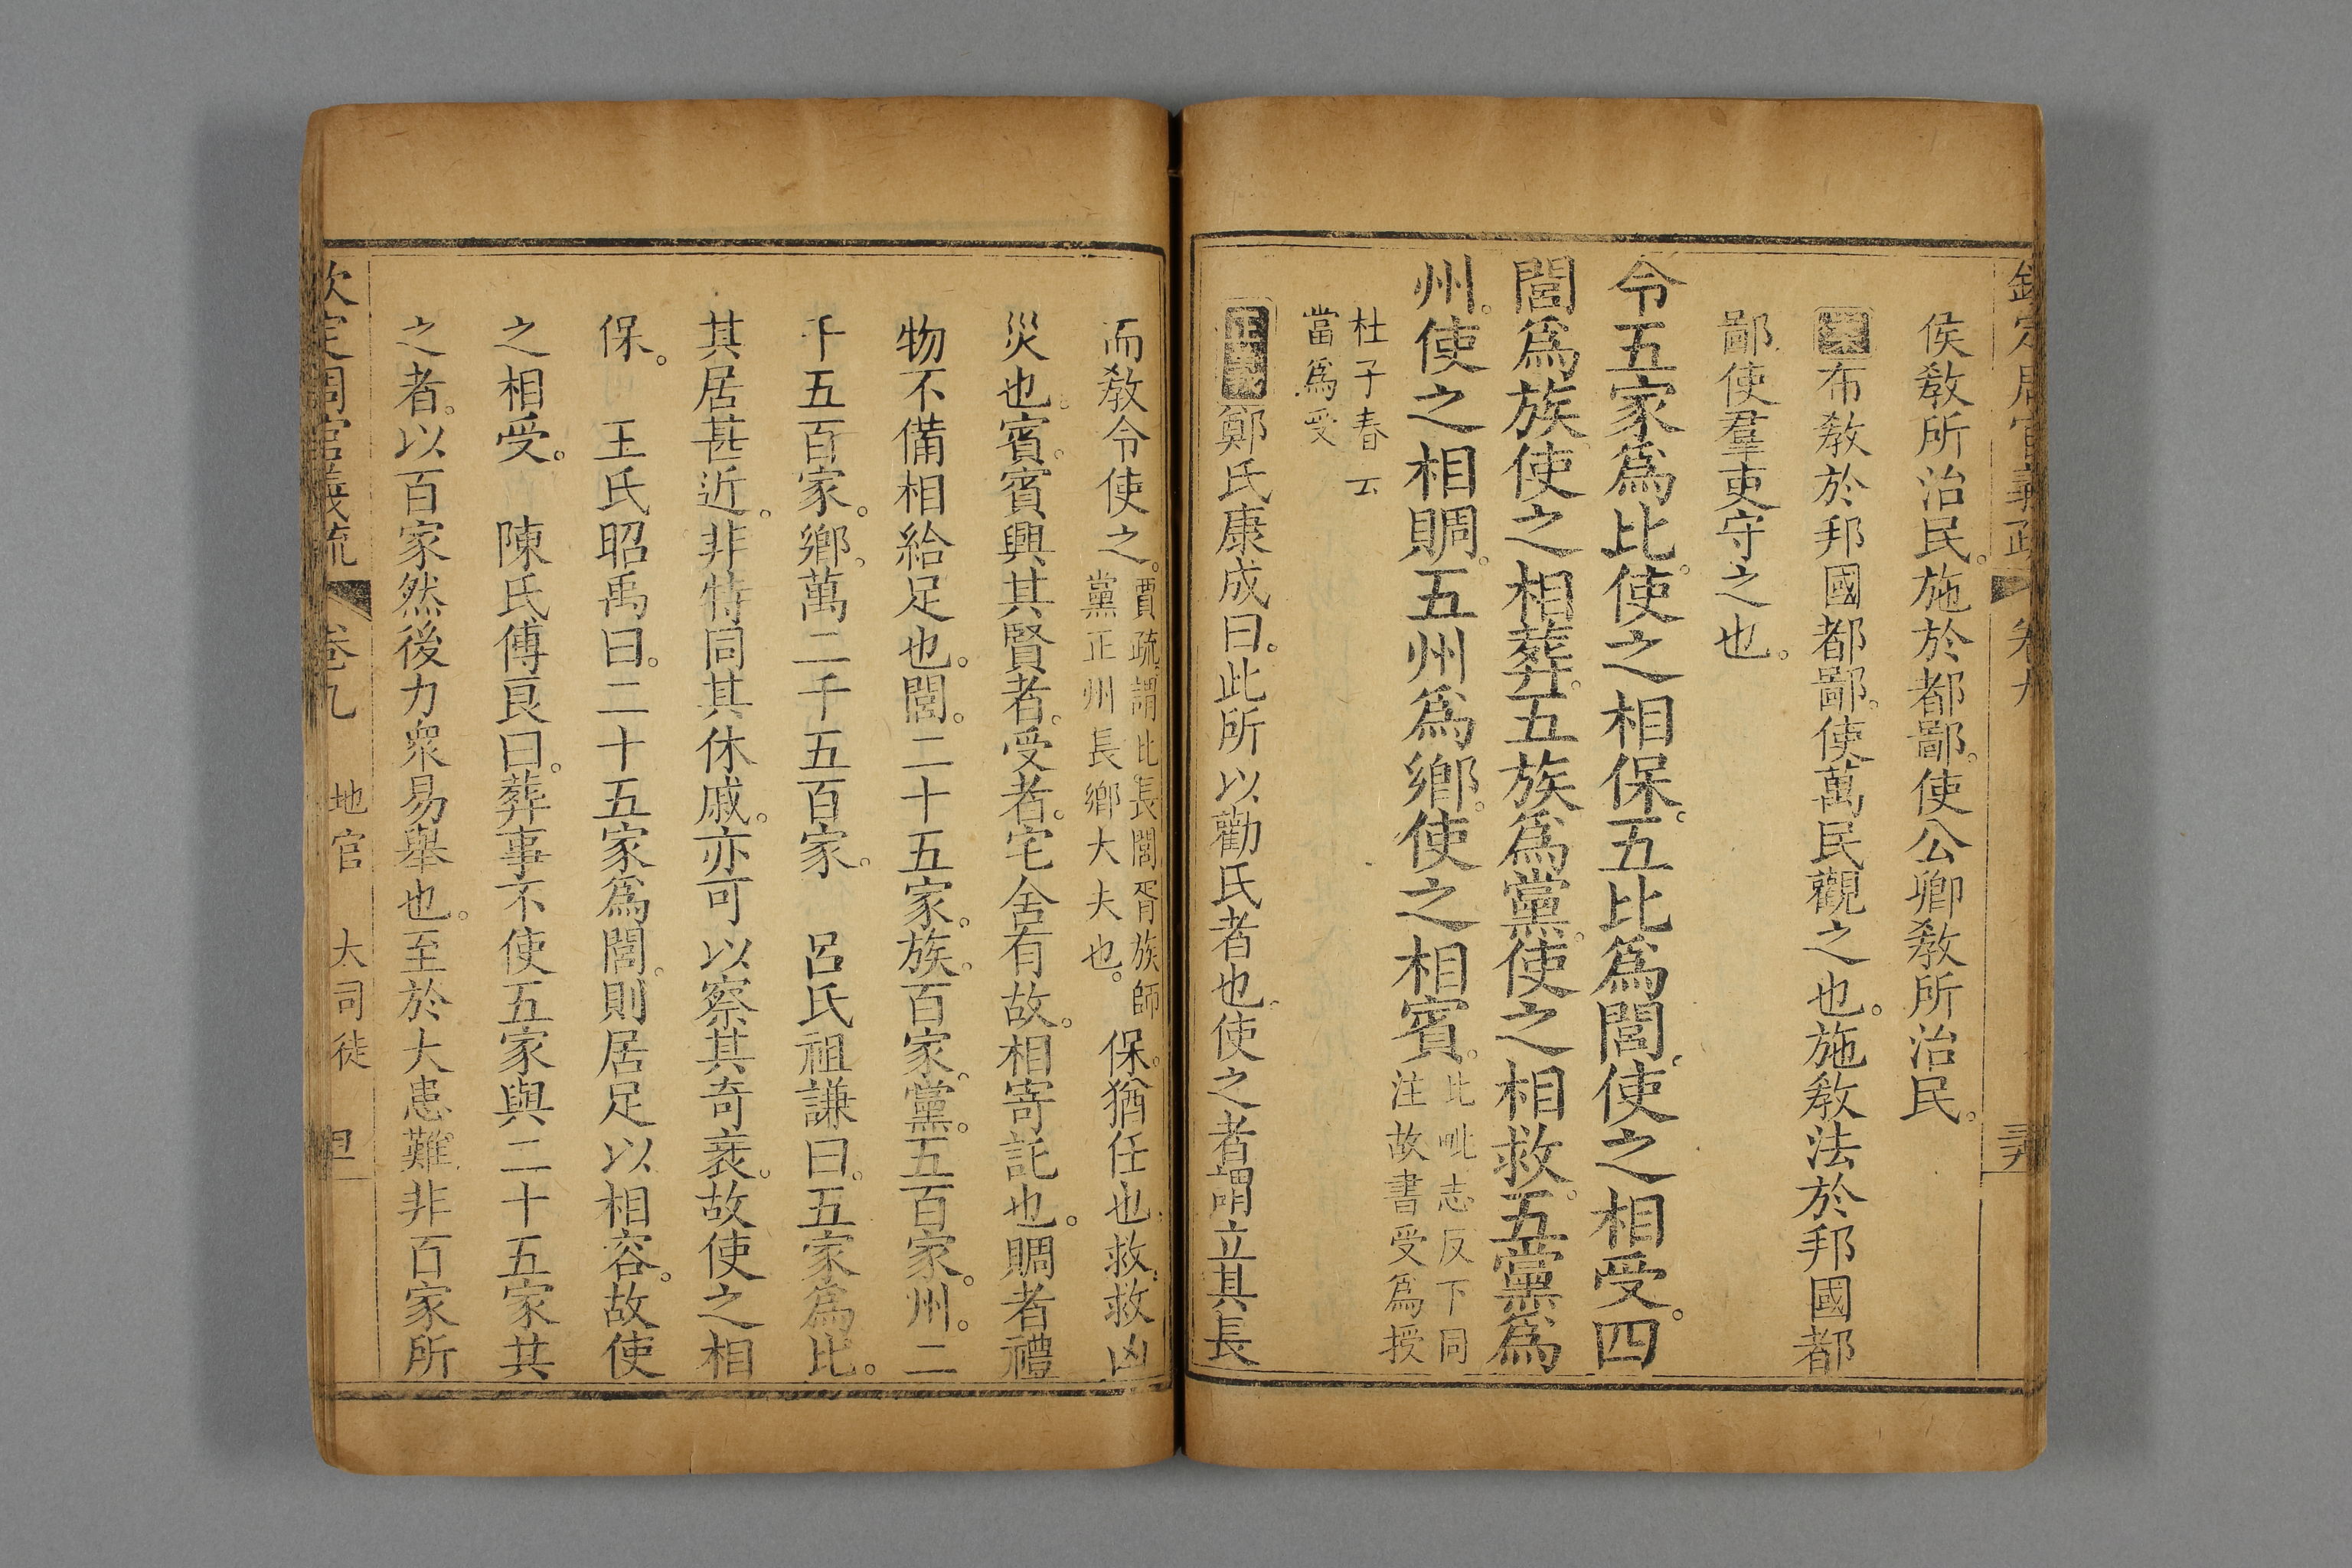 欽定周官義疏 卷九
侯敎所治民。施於都鄙。使公卿敎所治民。
布敎於邦國都鄙。使萬民觀之也。施敎法於邦國都
鄙。使羣吏守之也。
令五家爲比。使之相保。五比爲閭。使之相受。四
閭爲族。使之相葬。五族爲黨。使之相救。五黨爲
州。使之相賙。五州爲鄉。使之相賓。比毗志反下同
注故書受爲授
杜子春云
當爲受
正義鄭氏康成曰。此所以勸民者也。使之者謂立其長
而敎令使之。賈疏。謂比長閭胥族師
黨正州長鄉大夫也。保。猶任也。救。救凶
災也。賓。賓興其賢者。受者。宅舍有故。相寄託也。賙者禮
物不備相給足也。閭。二十五家。族。百家。黨。五百家。州。二
千五百家。鄉。萬二千五百家。 呂氏祖謙曰。五家爲比。
其居甚近。非特同其休戚。亦可以察其奇衺。故使之相
保。 王氏昭禹曰。二十五家爲閭。則居足以相容。故使
之相受。 陳氏傅良曰。葬事不使五家與二十五家共
之者。以百家然後力衆易舉也。至於大患難。非百家所
欽定周官義疏 卷九 地官 大司徒